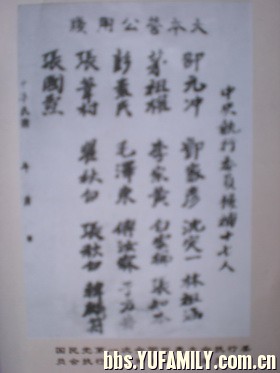 大本營公用牋
中央執行委員候補十七人
邵元冲 鄧家彥 沈定一 林祖涵
茅祖權 李宗黃 白雲梯 張知本
彭素民 毛澤東 傅汝霖 于方舟
張葦村 瞿秋白 張秋白 韓麟符
張國燾
年 月 日
国民党第一
员会执行
bbs.YUFAMILY.com.cn